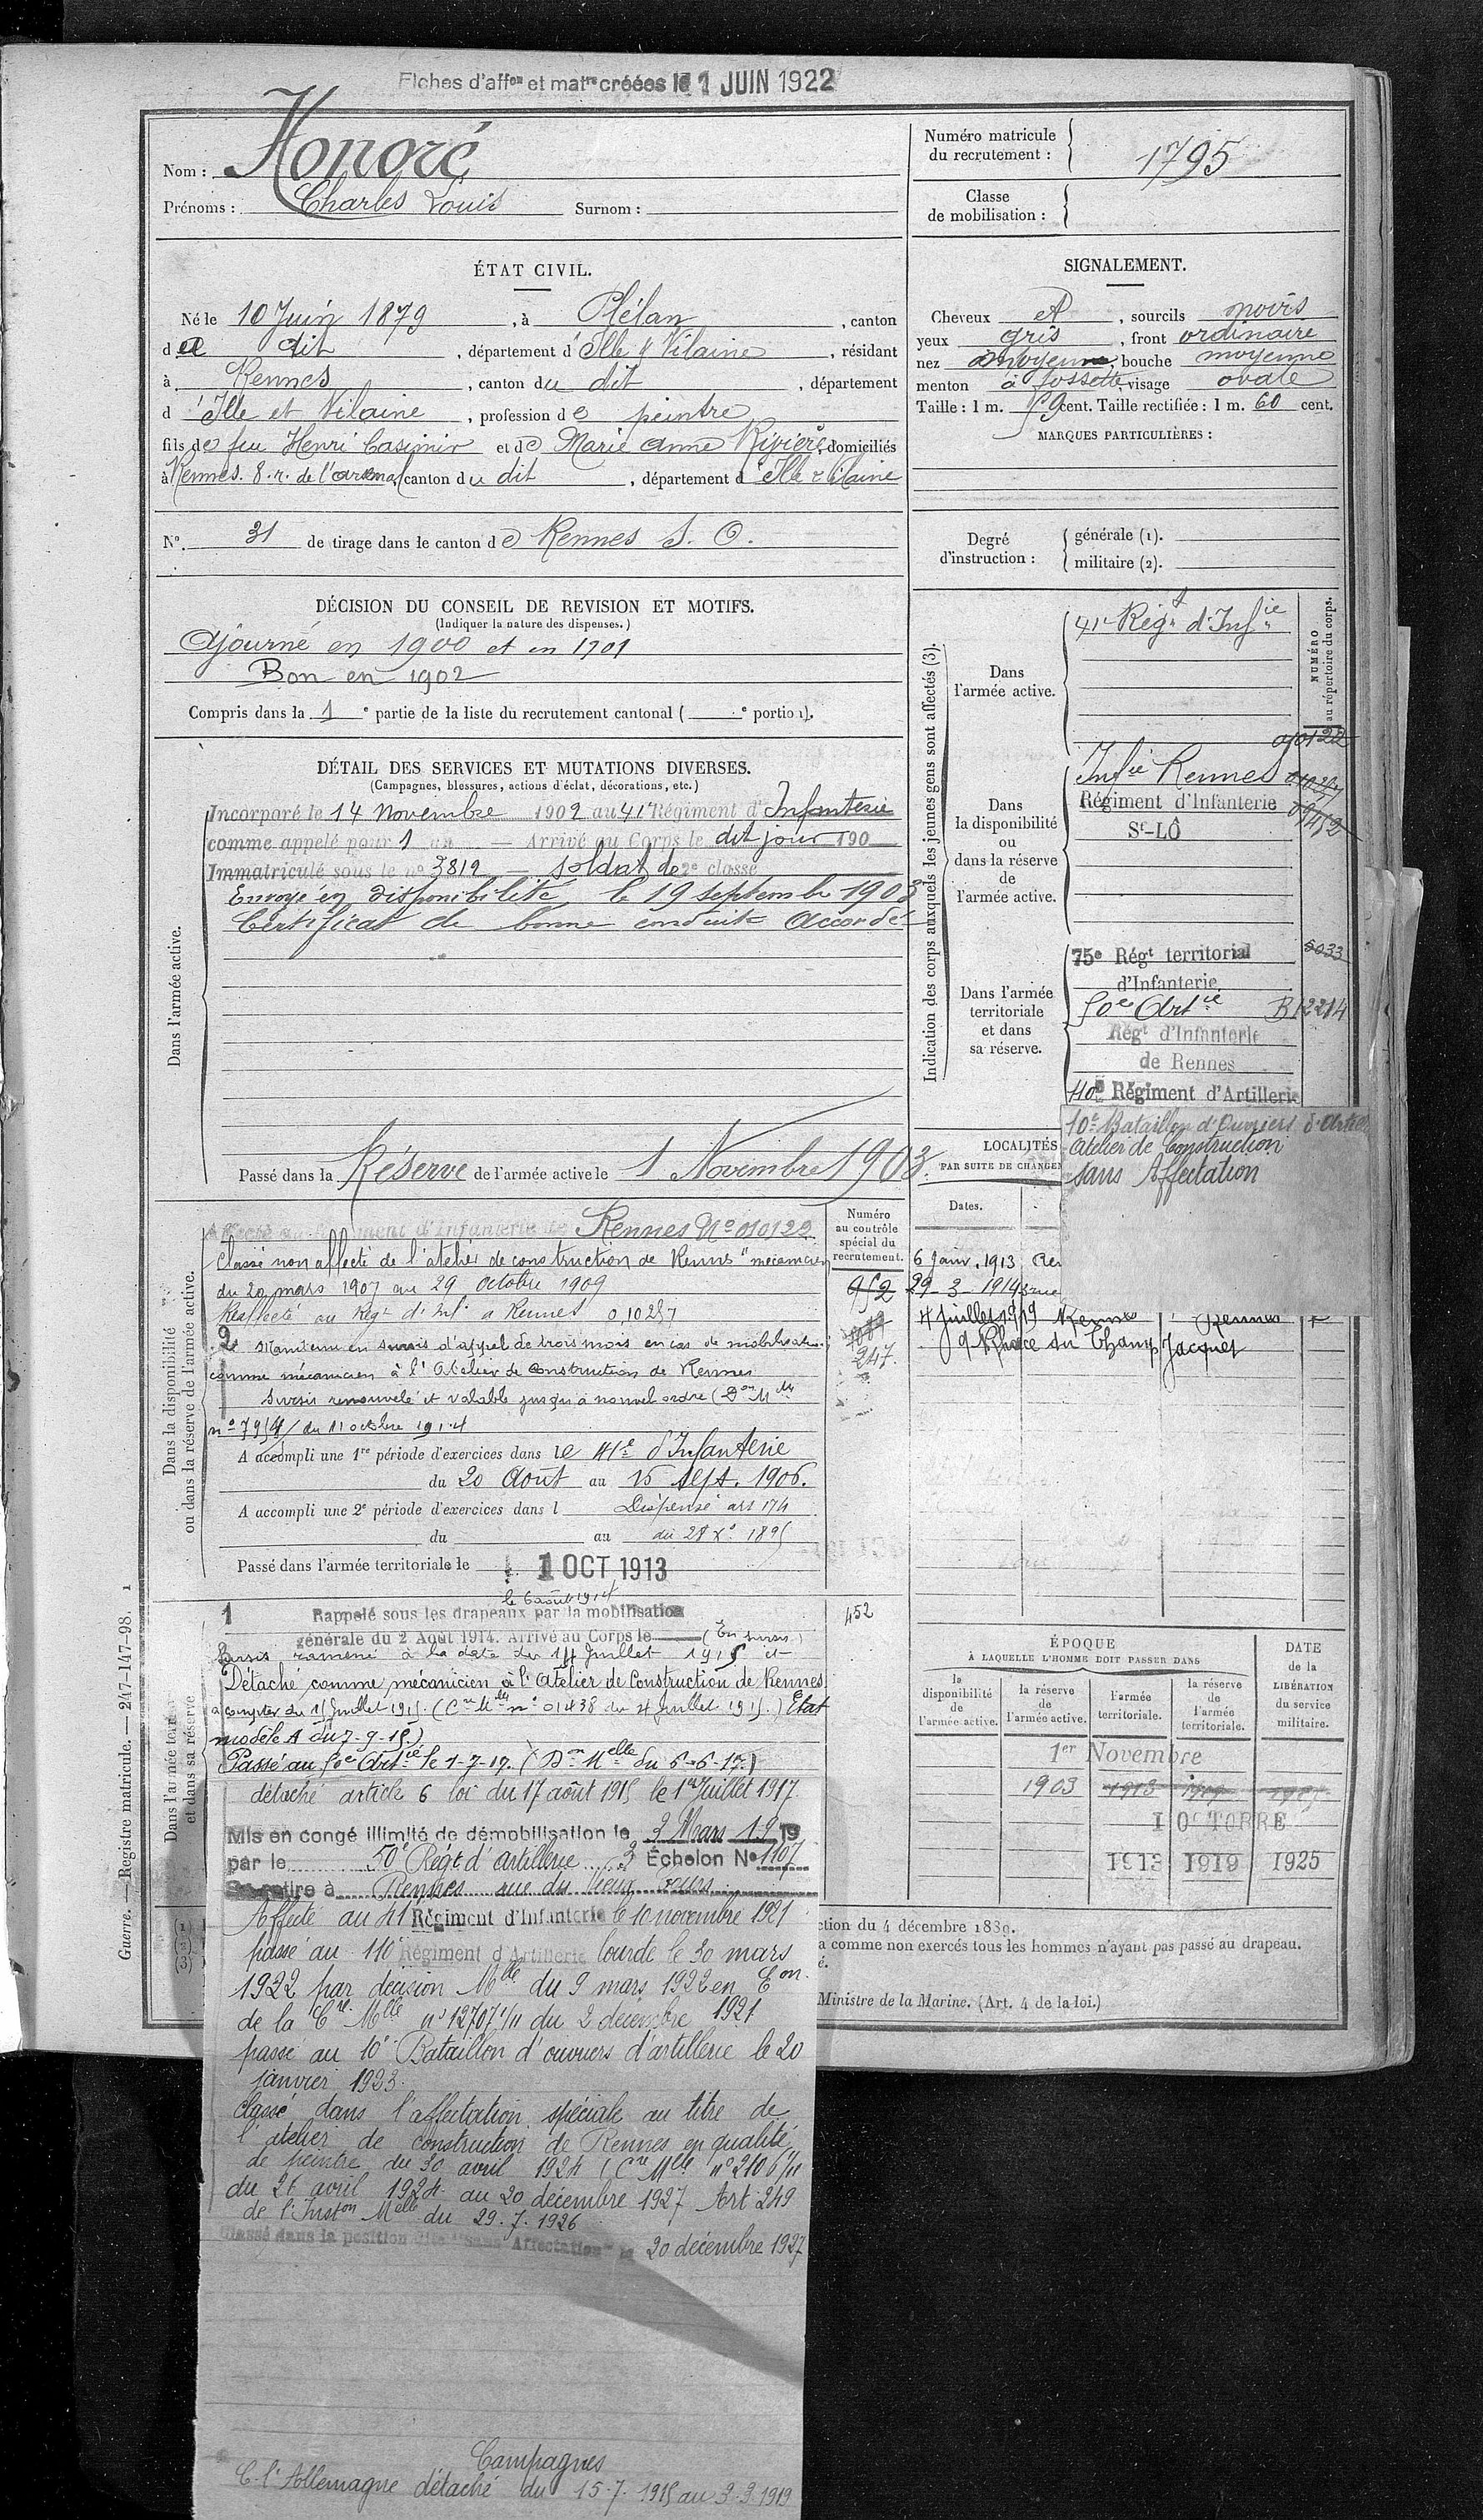 Fiches d'affon et matre créées le 1 JUIN 1922
Nom : Honoré
Prénoms : Charles Louis Surnom :
Numéro matricule du recrutement : 1795
Classe de mobilisation :
ÉTAT CIVIL.
Né le 10 Juin 1879, à Plélan, canton
d u dit, département d'Ille & Vilaine, résidant
à Rennes, canton du dit, département
d'Ille et Vilaine, profession de peintre
fils de feu Henri Casimir et de Marie Anne Rivière, domiciliés
à Rennes. 8. r. de l'arsenal, canton du dit, département d'Ille & Vilaine
N° 31 de tirage dans le canton de Rennes S. O.
SIGNALEMENT.
Cheveux et, sourcils noirs
yeux gris, front ordinaire
nez moyen, bouche moyenne
menton à fossette, visage ovale
Taille : 1 m. 59 cent. Taille rectifiée : 1 m. 60 cent.
MARQUES PARTICULIÈRES :
Degré d'instruction : générale (1).
militaire (2).
DÉCISION DU CONSEIL DE REVISION ET MOTIFS.
(Indiquer la nature des dispenses.)
Ajourné en 1900 et en 1901
Bon en 1902
Compris dans la 1e partie de la liste du recrutement cantonal ( e portion).
DÉTAIL DES SERVICES ET MUTATIONS DIVERSES.
(Campagnes, blessures, actions d'éclat, décorations, etc.)
Dans l'armée active.
Incorporé le 14 Novembre 1902 au 41e Régiment d'Infanterie
comme appelé pour 1 an — Arrivé au Corps le dit jour 190
Immatriculé sous le n° 3819 — soldat de 2e classe
Envoyé en disponibilité le 19 septembre 1903
Certificat de bonne conduite Accordé
Passé dans la Réserve de l'armée active le 1 Novembre 1903.
Indication des corps auxquels les jeunes gens sont affectés (3).
NUMÉRO au répertoire du corps.
Dans l'armée active.
41e Régt d'Infie
Dans la disponibilité ou dans la réserve de l'armée active.
010122
Infie Rennes
Régiment d'Infanterie
St-LÔ
Dans l'armée territoriale et dans sa réserve.
75e Régt territorial 5033
d'Infanterie
50e Artie B12214
Régt d'Infanterie
de Rennes
110e Régiment d'Artillerie
10e Bataillon d'Ouvriers d'Artie
Atelier de Construction
Sans Affectation
LOCALITÉS
PAR SUITE DE CHANGEM
Dates.
6 Janv. 1913 Ren
29-3-1914 rue
4 Juillet 1919 Rennes Rennes
9 Place du Champ Jacquet
Dans la disponibilité ou dans la réserve de l'armée active.
Numéro au contrôle spécial du recrutement.
952
247.
Affecté au Régiment d'Infanterie de Rennes N° 010122
Classé non affecté de l'atelier de construction de Rennes "mécanicien"
du 20 mars 1907 au 29 octobre 1909
Réaffecté au Régt d'Inf. à Rennes 0,10257
2 Maintenu en sursis d'appel de trois mois en cas de mobilisation
comme mécanicien à l'Atelier de Construction de Rennes
Sursis renouvelé et valable jusqu'à nouvel ordre (Don Mlle
n° 7954/ du 11 octobre 1914
A accompli une 1re période d'exercices dans le 41e d'Infanterie
du 20 Août au 15 sept. 1906.
A accompli une 2e période d'exercices dans l Dispensé art 174
du au du 28 Xe 1895
Passé dans l'armée territoriale le 1 OCT 1913
Dans l'armée territoriale et dans sa réserve
452
le 6 août 1914
1 Rappelé sous les drapeaux par la mobilisation
générale du 2 Août 1914. Arrivé au Corps le (En sursis)
Sursis ramené à la date du 14 Juillet 1915 et
Détaché comme mécanicien à l'Atelier de Construction de Rennes
à compter du 15 Juillet 1915. (Cre Mlle n° 01438 du 4 Juillet 1915.) Etat
modèle A du 7-9-15.)
Passé au 50e Artie le 1-7-17. (Don Melle du 6-6-17.)
détaché article 6 loi du 17 août 1915 le 1er Juillet 1917.
Mis en congé illimité de démobilisation le 3 Mars 1919
par le 50e Régt d'artillerie 3 Echelon N° 1107
Se retire à Rennes rue du Vieux Cours
Affecté au 41 Régiment d'Infanterie le 10 novembre 1921
passé au 110e Régiment d'Artillerie lourde le 30 mars
1922 par décision Mlle du 9 mars 1922 en Eon
de la Cre Mlle n° 12707 1/11 du 2 décembre 1921
passé au 10e Bataillon d'ouvriers d'artillerie le 20
janvier 1923.
classé dans l'affectation spéciale au titre de
l'atelier de construction de Rennes en qualité
de peintre du 30 avril 1924 (Cre Mlle n° 2106/11
du 26 avril 1924 au 20 décembre 1927 Art 249
de l'Inston Melle du 29.7.1926
Classé dans la position dite "Sans Affectation" le 20 décembre 1927
Campagnes
C. l'Allemagne détaché du 15-7-1915 au 3-3-1919
ÉPOQUE
À LAQUELLE L'HOMME DOIT PASSER DANS
la disponibilité de l'armée active.
la réserve de l'armée active.
l'armée territoriale.
la réserve de l'armée territoriale.
DATE de la LIBÉRATION du service militaire.
1er Novembre
1903 1913
1 OCTOBRE
1913 1919 1925
ction du 4 décembre 1889.
a comme non exercés tous les hommes n'ayant pas passé au drapeau.
é.
Ministre de la Marine. (Art. 4 de la loi.)
Guerre. — Registre matricule. — 247-147-98. 1